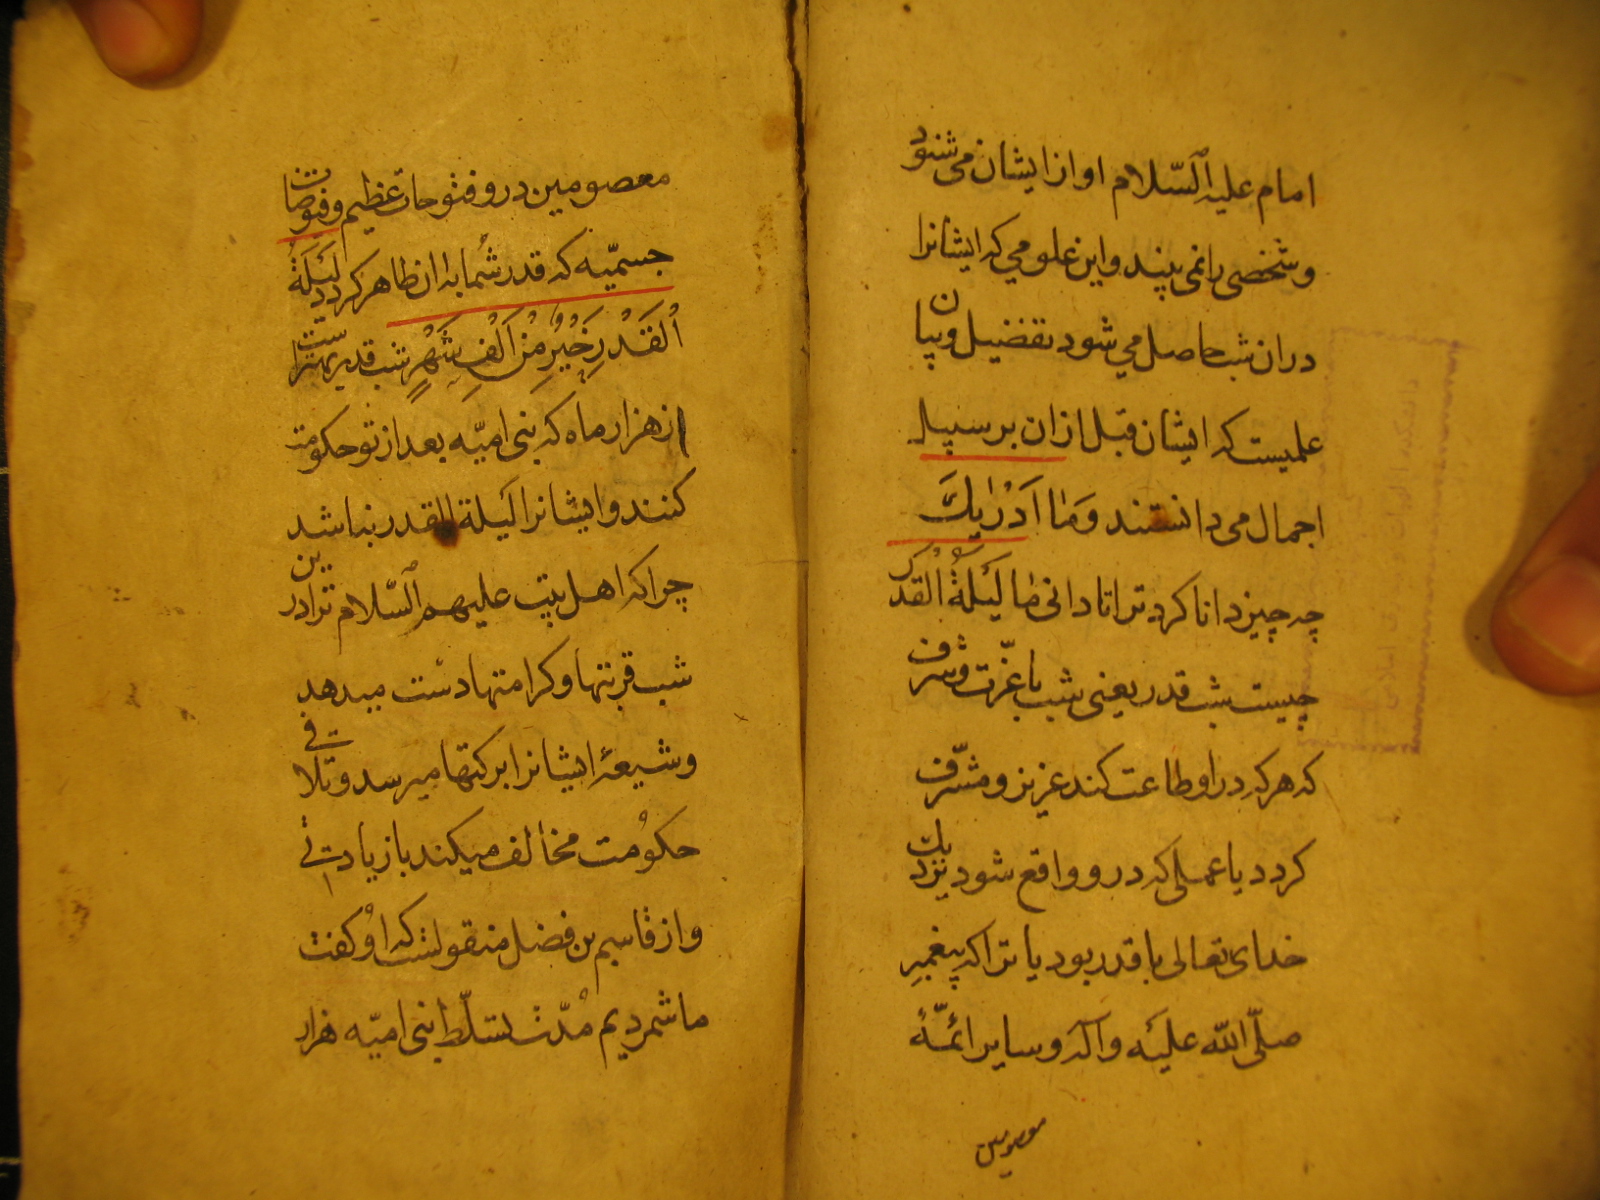 امام علیه السّلام اواز ایشان می شنود
و شخصی را نمی بیند و این علومی که ایشانرا
در ان شب حاصل می شود تفضیل و بیان
علمیست که ایشان قبل از ان بر سبیل
اجمال می دانستند وَمَا اَدْرٰیكَ
چه چیز دانا کرد ترا تا دانی مَا لَیْلَةُ الْقَدْرِ
چیست شب قدر یعنی شب با عزّت و شرف
که هر که در او طاعت کند عزیز و مشرّف
کردد یا عملی که در و واقع شود نزدیك
خدای تعالی با قدر بود یا ترا که پیغمبرِ
صلّی الله علیَه وآله و سایر ائمّهٔ
معصومین
معصومین در و فتوحات عظیم و فیوضات
جسمیّه که قدر شما به ان ظاهر کردد لَیْلَةُ
الْقَدْرِ خَیْرٌ مِنْ اَلْفِ شَهْرٍ شب قدر بهتر است
از هزار ماه که بنی امیّه بعد از تو حکومت
کنند و ایشانرا لَیلة القدر نباشد
چرا که اهل بیت علیهم السّلام ترا در ین
شب قربتها و کرامتها دست میدهد
و شیعهٔ ایشانرا برکتها میرسد و تلافی
حکومت مخالف میکند با زیادتی
و از قاسم بن فضل منقولست که او کفت
ما شمردیم مُدّت تسلّط بنی امیّه هزار